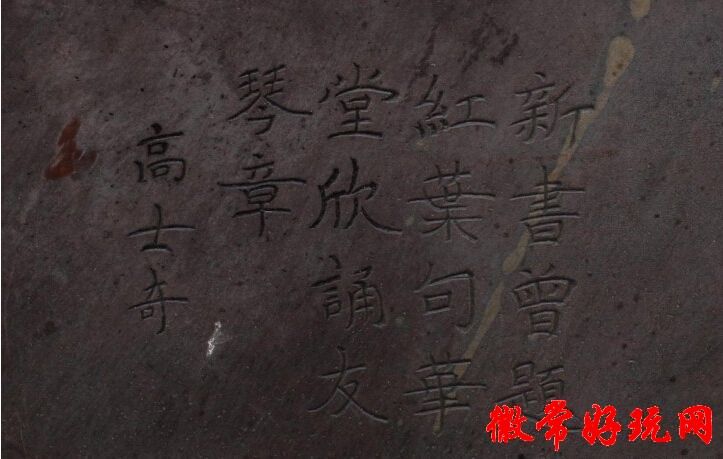 新書曾題
紅葉句華
堂欣誦友
琴章
高士奇
徽常好玩网